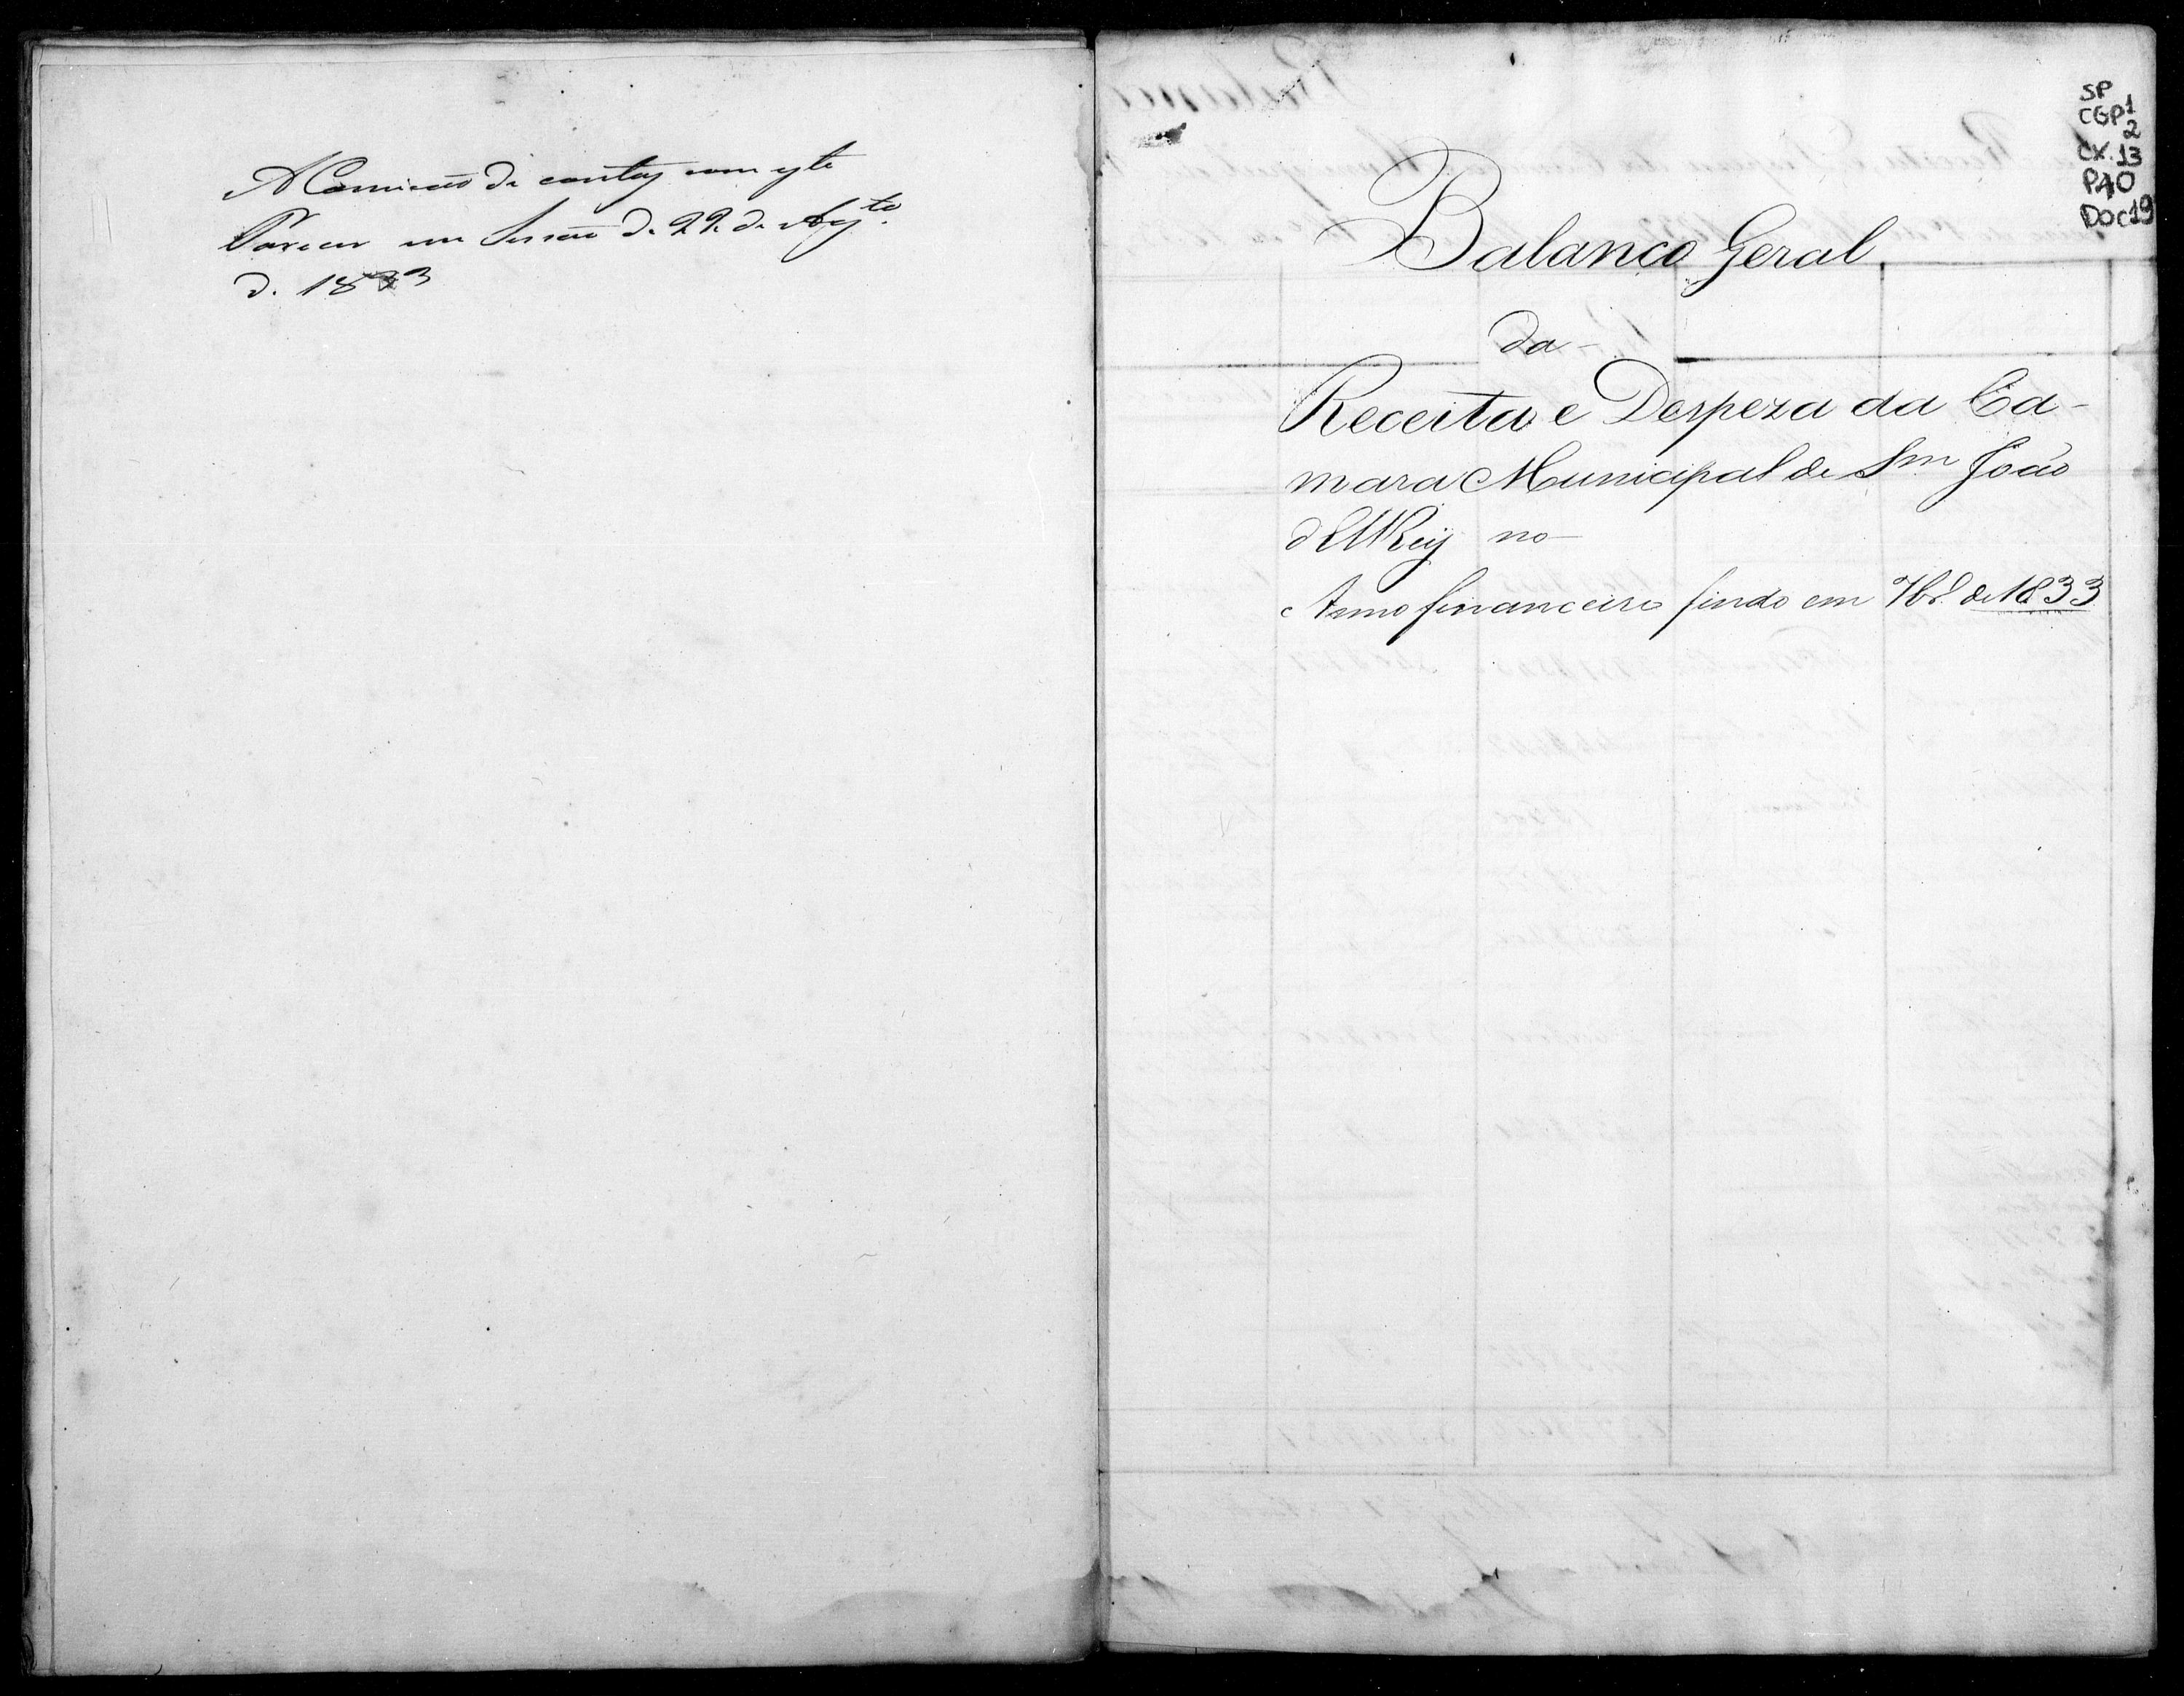 A Comissão de contas com este
Parecer em Sessão de 22 de Ag.to
de 1833
SP
CGP1
2
CX. 13
P40
DOC19
Balanço Geral
da
Receita e Despeza da Ca-
mara Municipal de Sm João
d'ElRey no
Anno financeiro findo em 7br.o de 1833